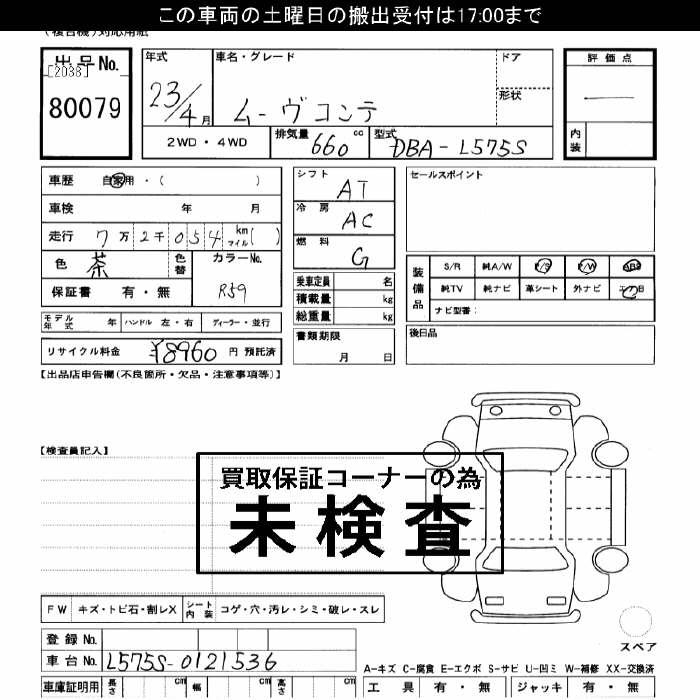 この車両の土曜日の搬出受付は17:00まで
(複合機)対応用紙
出品No.
[2038]
80079
年式
23/4月
車名・グレード
ムーヴコンテ
ドア
形状
評価点
—
内装
2WD・4WD
排気量 660 cc
型式 DBA-L575S
車歴 自家用・( )
車検 年 月
走行 7万2千054 km マイル( )
色 茶
色替
カラーNo. R59
保証書 有・無
モデル年式 年
ハンドル 左・右
ディーラー・並行
リサイクル料金 ¥8960 円 預託済
シフト AT
冷房 AC
燃料 G
乗車定員 名
積載量 kg
総重量 kg
書類期限 月 日
セールスポイント
装備品
S/R 純A/W P/S P/W ABS
純TV 純ナビ 革シート 外ナビ エアB
ナビ型番:
後日品
【出品店申告欄(不良箇所・欠品・注意事項等)】
【検査員記入】
買取保証コーナーの為
未検査
FW キズ・トビ石・割レX
シート内装 コゲ・穴・汚レ・シミ・破レ・スレ
登録No.
車台No. L575S-0121536
車庫証明用 長さ cm 幅 cm 高さ cm
スペア
A-キズ C-腐食 E-エクボ S-サビ U-凹ミ W-補修 XX-交換済
工具 有・無 ジャッキ 有・無